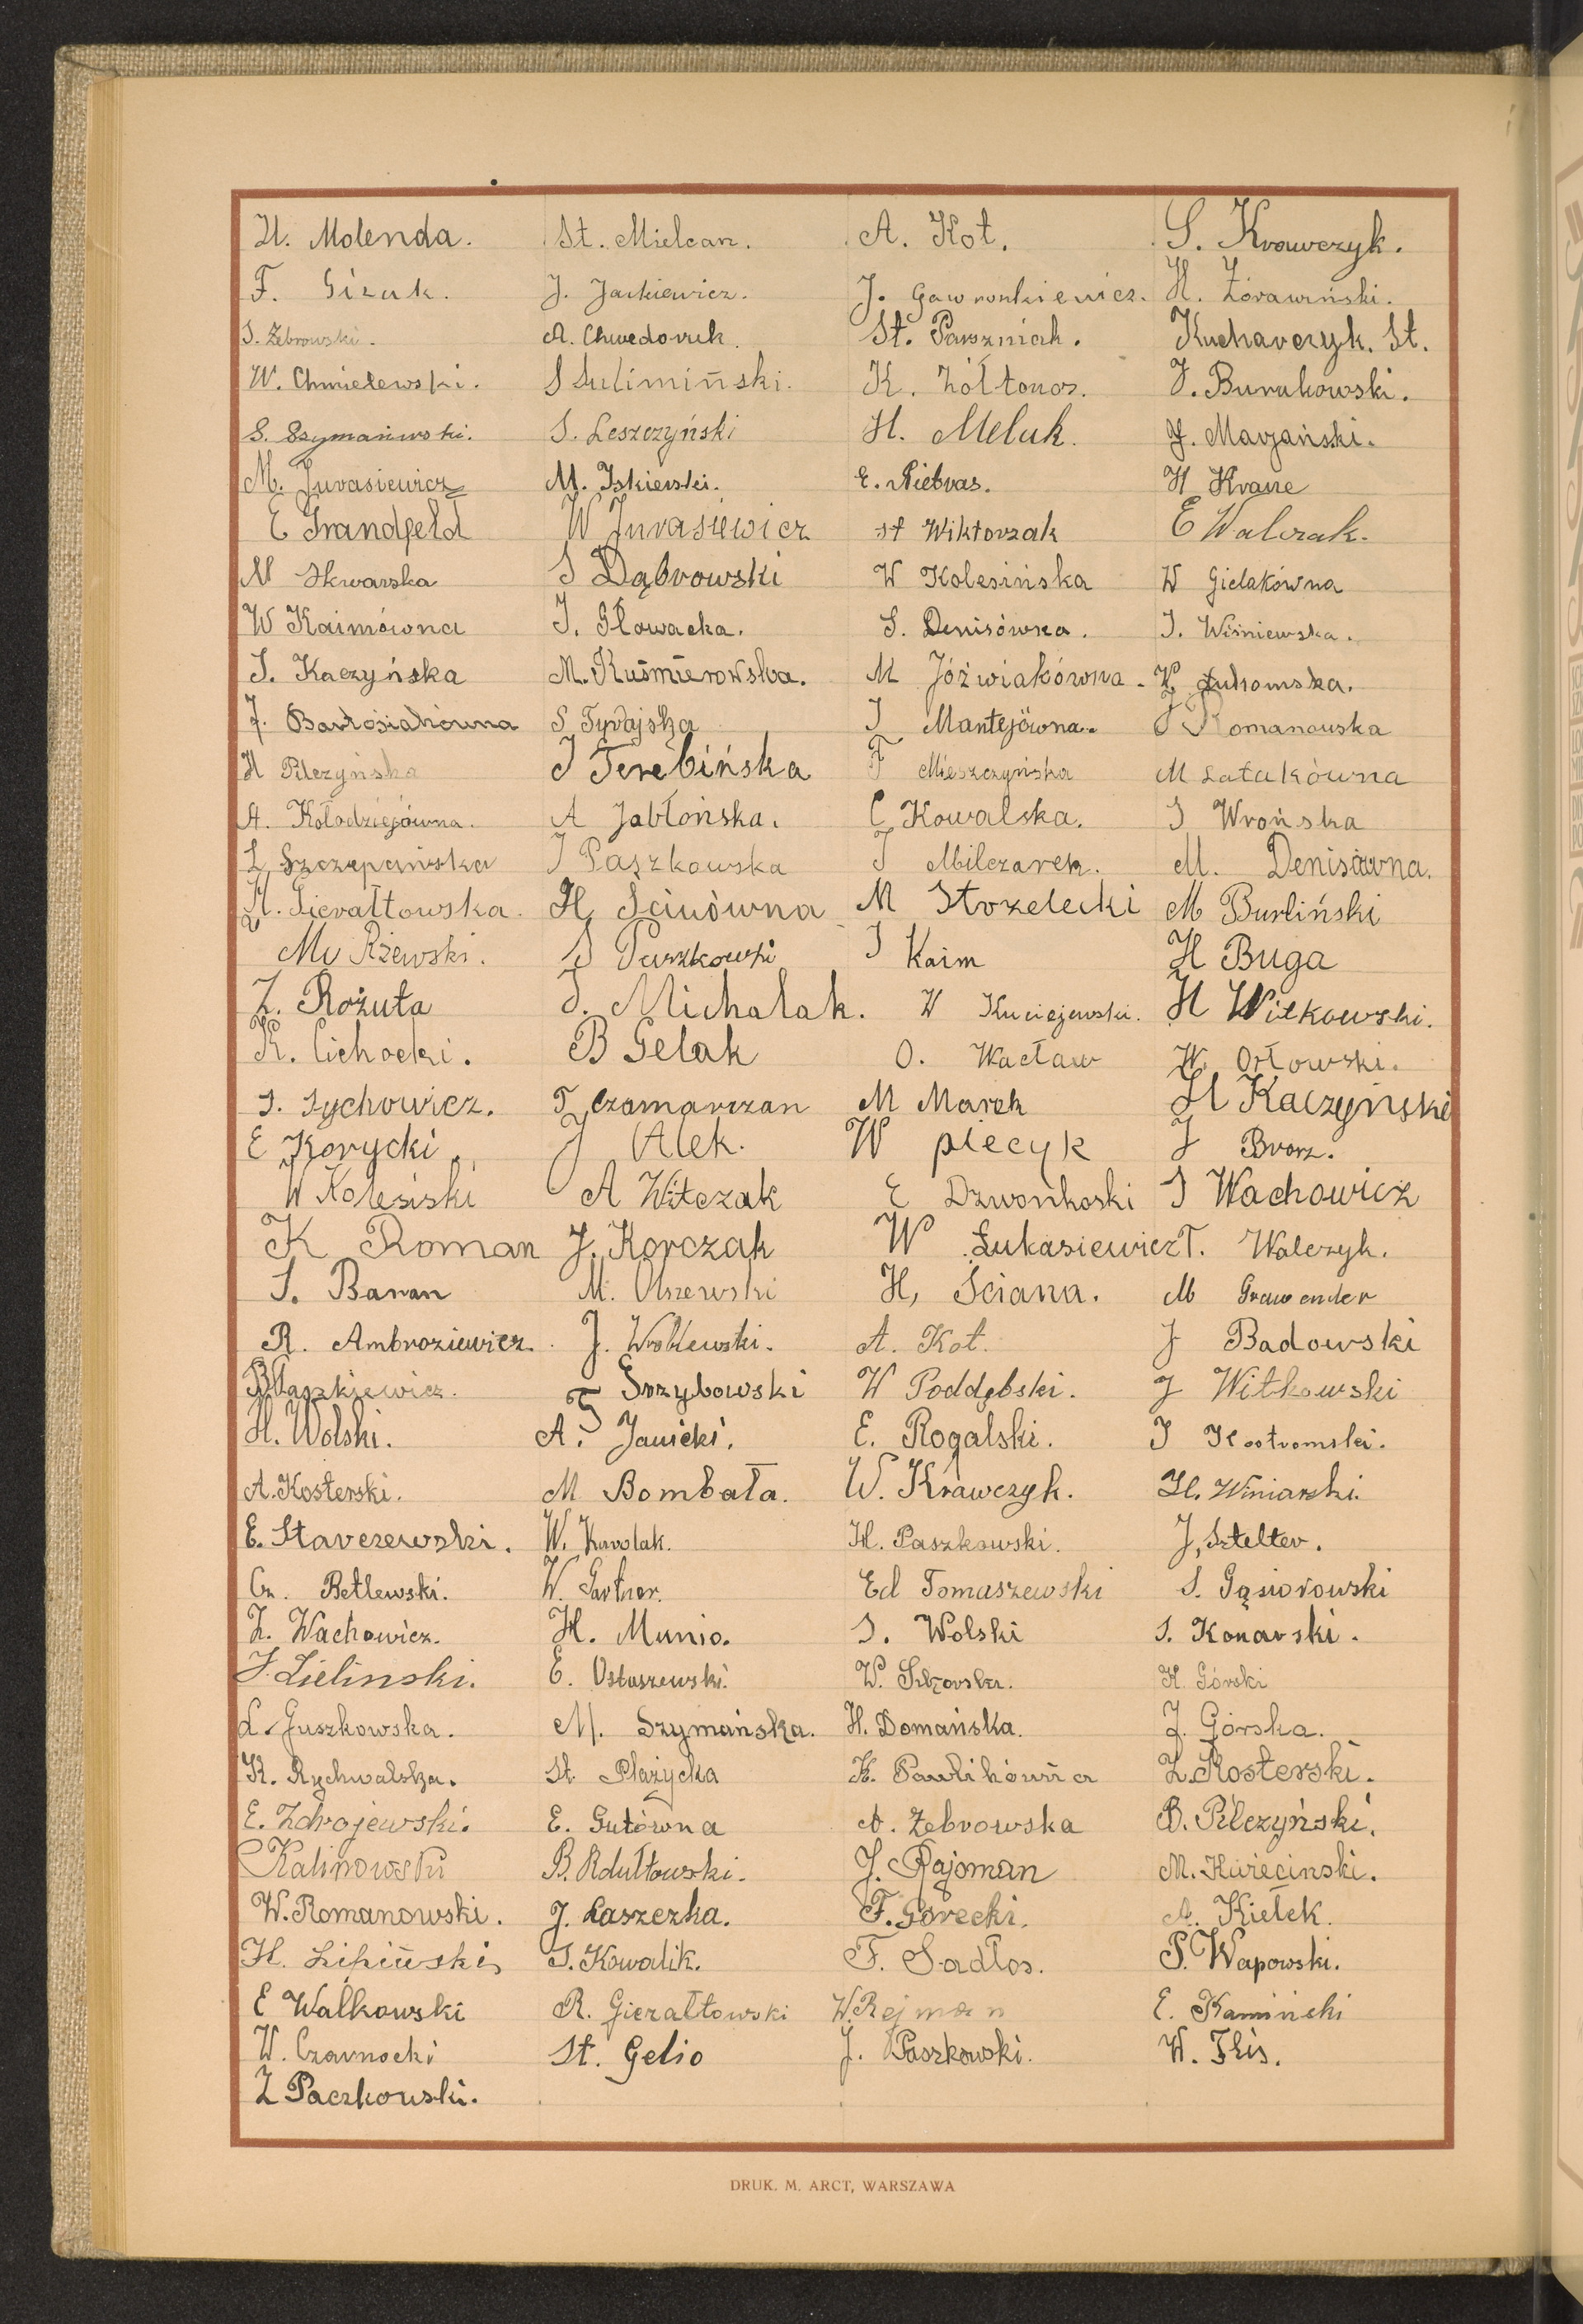 H. Molenda. St. Mielcan. A. Kot. S. Krawczyk.
F. Gizak. J. Jackiewicz. J. Gawronkiewicz. H. Żórawiński.
S. Żebrowski. A. Chwedoruk. St. Paszniak. Kucharczyk. St.
W. Chmielewski. S Sulimiński. K. Żółtonos. J. Burakowski.
S. Szymaniwski. S. Leszczyński H. Meluk. J. Marjański.
M. Jurasiewicz M. Iskierski. E. Pietras. H Krauze
E Grandfeld W Jurasiewicz st Wiktorzak E Walczak.
M Skwarska S Dąbrowski W Kolesińska W Gielakówna
W Kaimówna J. Głowacka. S. Denisówna. J. Wiśniewska.
J. Kaczyńska M. Kuśmierowska. M Jóźwiakówna. K. Łukomska.
J. Bartosiakówna S Tyrajska J Mantejówna. J Romanowska
H Pilczyńska J Terebińska F Mieszczyńska M Łatakówna
A. Kołodziejówna. A Jabłońska. C Kowalska. J Wrońska
L Szczepańska J Paszkowska J Milczarek. M. Denisówna.
A. Gierałtowska. H Ścinówna M Strzelecki M Burliński
M Rżewski. S Paszkowski J Kaim H Buga
Z. Rożuta J. Michalak. W Kuciejewski. H Witkowski.
K. Cichocki. B Gelak O. Wacław W. Orłowski.
S. Sychowicz. T Czamarczan M Marek H Kaczyński
E Korycki. J Alek. W piecyk J Brorz.
W Kolesiski A Witczak E Dzwonkoski J Wachowicz
K Roman J. Korczak W Łukasiewicz T. Walczyk.
S. Baran M. Olszewski H, Ściana. M Grawender
R. Ambroziewicz. J. Wróblewski. A. Kot. J Badowski
Błaszkiewicz. T Grzybowski W Poddębski. J Witkowski
H. Wolski. A. Janicki. E. Rogalski. J Kostromski.
A. Kosterski. M Bombała. W. Krawczyk. H. Winiarski.
E. Starczewski. W. Karolak. H. Paszkowski. J, Sztelter.
Cz. Betlewski. W. Gartner. Ed Tomaszewski S. Gąsiorowski
Z. Wachowicz. H. Munio. S. Wolski S. Konarski.
J. Zieliński. E. Ostaszewski. W. K. Górski
L. Guszkowska. M. Szymańska. H. Domańska. J. Górska.
K. Rychwalska. St. Płażycka K. Pawlikówna Z. Kosterski.
E. Zdrojewski. E. Gutówna A. Żebrowska B. Pilczyński.
Kalinowski B. Rdułtowski. J. Rajoman M. Kwieciński.
W. Romanowski. J. Laszczka. F. Górecki. A. Kiełek.
H. Lipiński, S. Kowalik. F. Sadłos. S. Wapowski.
E Walkowski R. Gierałtowski W. Rejman E. Kamiński
W. Czarnocki St. Gelio J. Paszkowski. W. Flis.
Z Paczkowski.
DRUK. M. ARCT, WARSZAWA